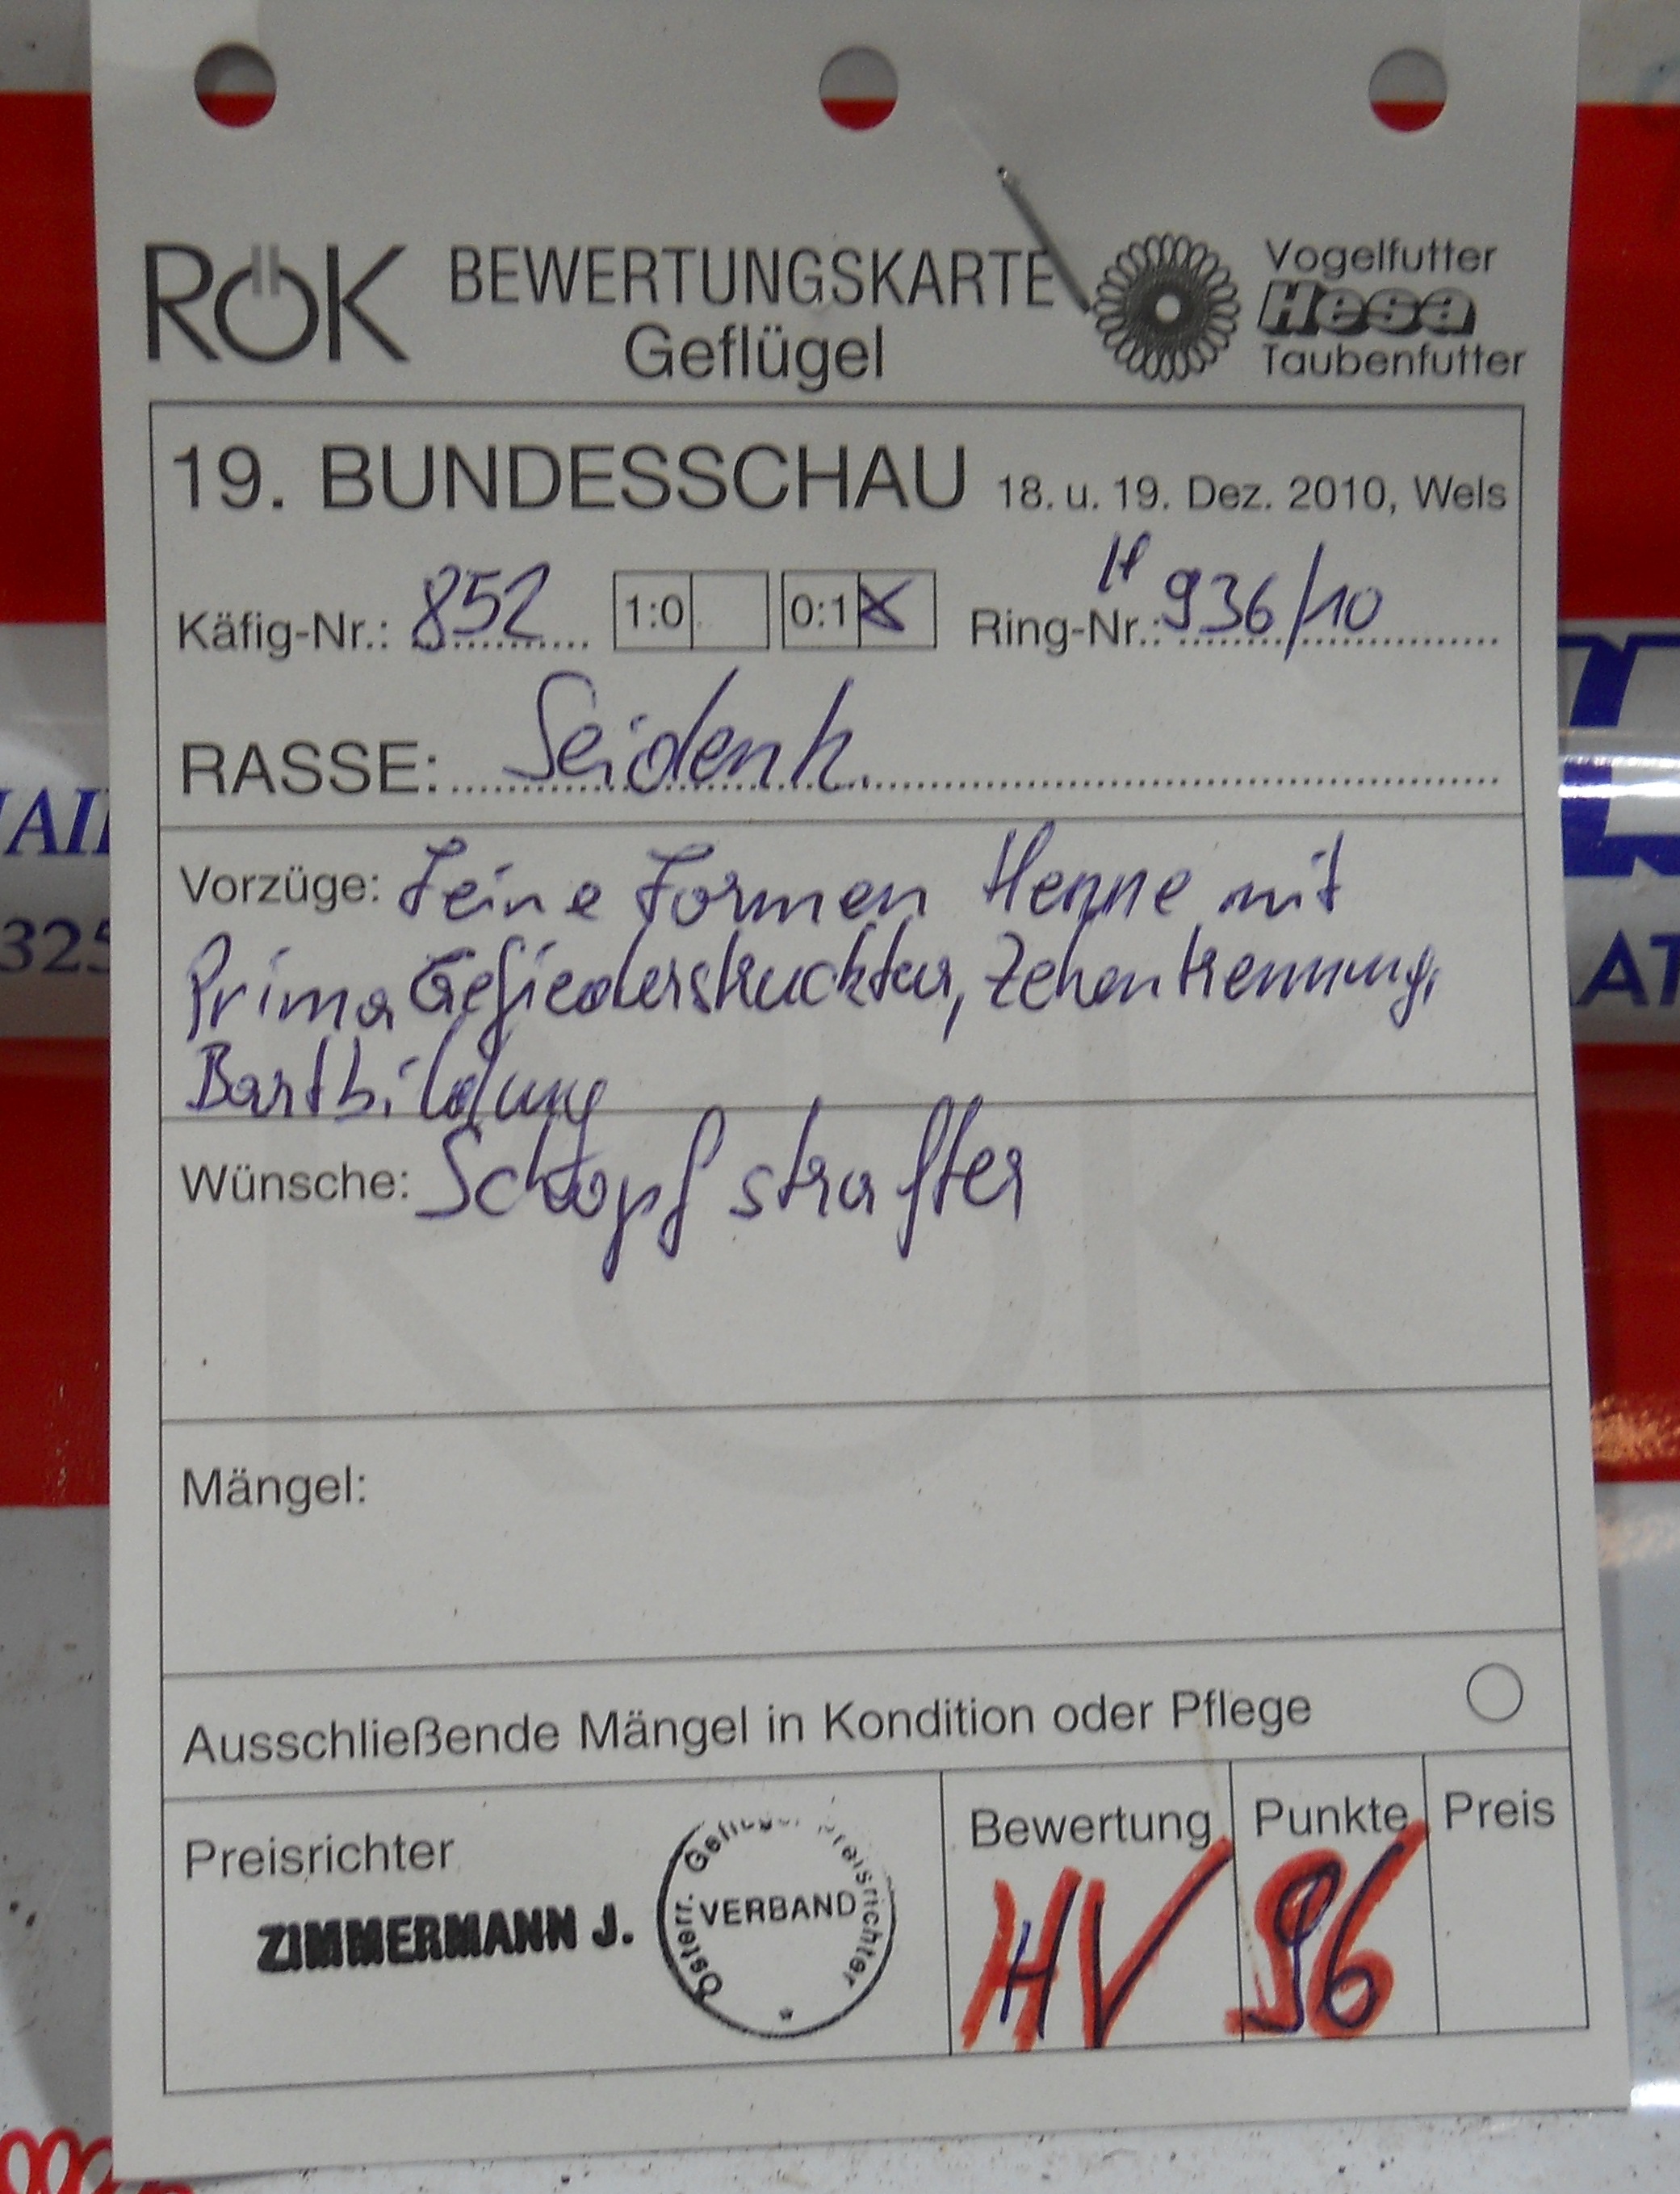 RÖK BEWERTUNGSKARTE
Geflügel
Vogelfutter
Hesa
Taubenfutter
19. BUNDESSCHAU 18. u. 19. Dez. 2010, Wels
Käfig-Nr.: 852 1:0 0:1 X Ring-Nr.: H 936/10
RASSE: Seidenh.
Vorzüge: Feine Formen Henne mit
Prima Gefiederstrucktur, Zehentrennung,
Bartbildung
Wünsche: Schopf straffer
Mängel:
Ausschließende Mängel in Kondition oder Pflege
Preisrichter
ZIMMERMANN J.
Österr. Geflügel Preisrichter
VERBAND
Bewertung Punkte Preis
HV 96
325
AT